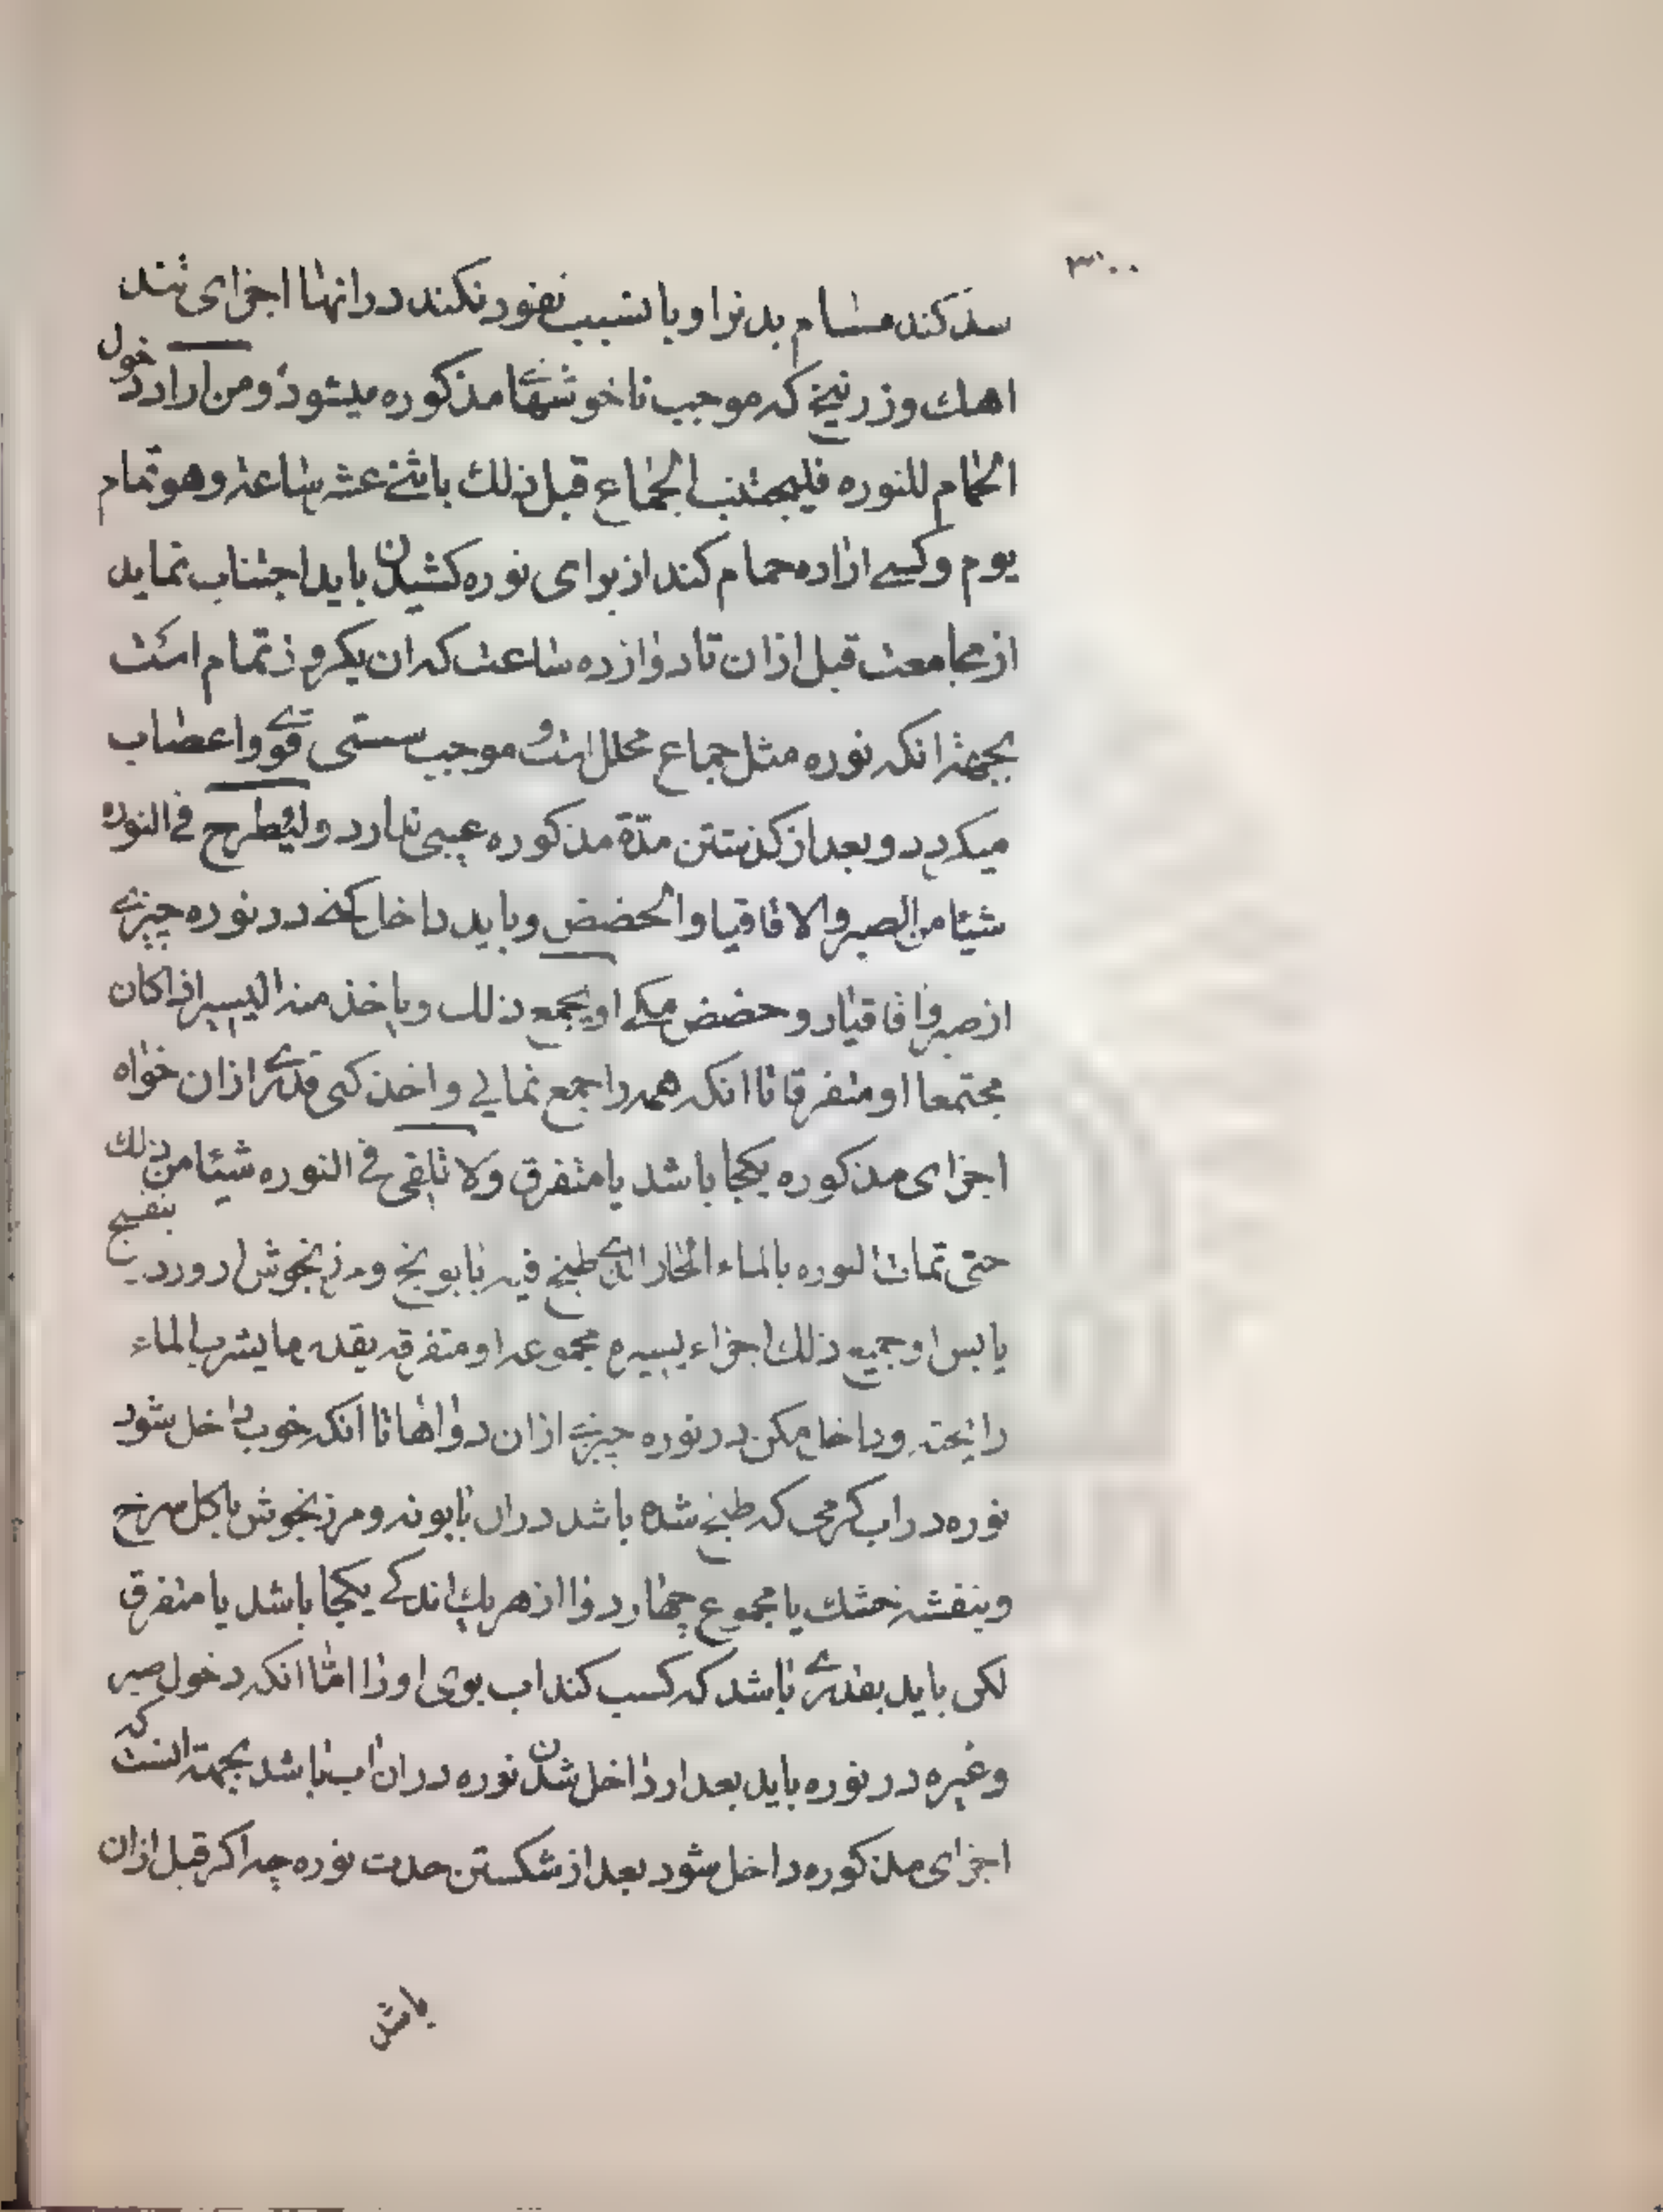 ۳۰۰
سد کند مسام بدنرا و باین سبب نفوذ نکند در انها اجزای تند
اهك و زرنیخ که موجب ناخوشیهای مذکوره میشود و من اراد دخول
الحمام للنوره فلیجتنب الجماع قبل ذلك باثنی عشر ساعة و هو تمام
یوم و کسی اراده حمام کند از برای نوره کشیدن باید اجتناب نماید
از مجامعت قبل ازان تا دوازده ساعت که ان یکروز تمام است
بجهة انکه نوره مثل جماع محلل است و موجب سستی قوی و اعصاب
میکردد و بعد از کذشتن مدّة مذکوره عیبی ندارد و لیطرح فی النوره
شیئا من الصبر والاقاقیا والحضض و باید داخل کند در نوره چیزی
از صبر و اقاقیا و حضض مکی او یجمع ذلك و یاخذ منه الیسیر اذا کان
مجتمعا او متفرقا تا انکه همه را جمع نمائی و اخذ کنی قدری ازان خواه
اجزای مذکوره یکجا باشد یا متفرق ولا تلقی فی النوره شیئا من ذلك
حتی تماث النوره بالماء الحار الذی طبخ فیه بابونج و مرزنجوش او ورد بنفسج
یابس او جمیع ذلك اجزاء یسیره مجموعه او متفرقه بقدر ما یشرب الماء
رایحته و داخل مکن در نوره چیزی ازان دواها تا انکه خوب داخل شود
نوره در اب کرمی که طبخ شده باشد دران بابونه و مرزنجوش یا کل سرخ
و بنفشه خشك یا مجموع چهار دوا از هر یك اندکی یکجا باشد یا متفرق
لکن باید بقدری باشد که کسب کند اب بوی او را امّا انکه دخول صبر
و غیره در نوره باید بعد از داخل شدن نوره در ان اب باشد بجهة انست که
اجزای مذکوره داخل شود بعد از شکستن حدت نوره چه اکر قبل ازان
باشد